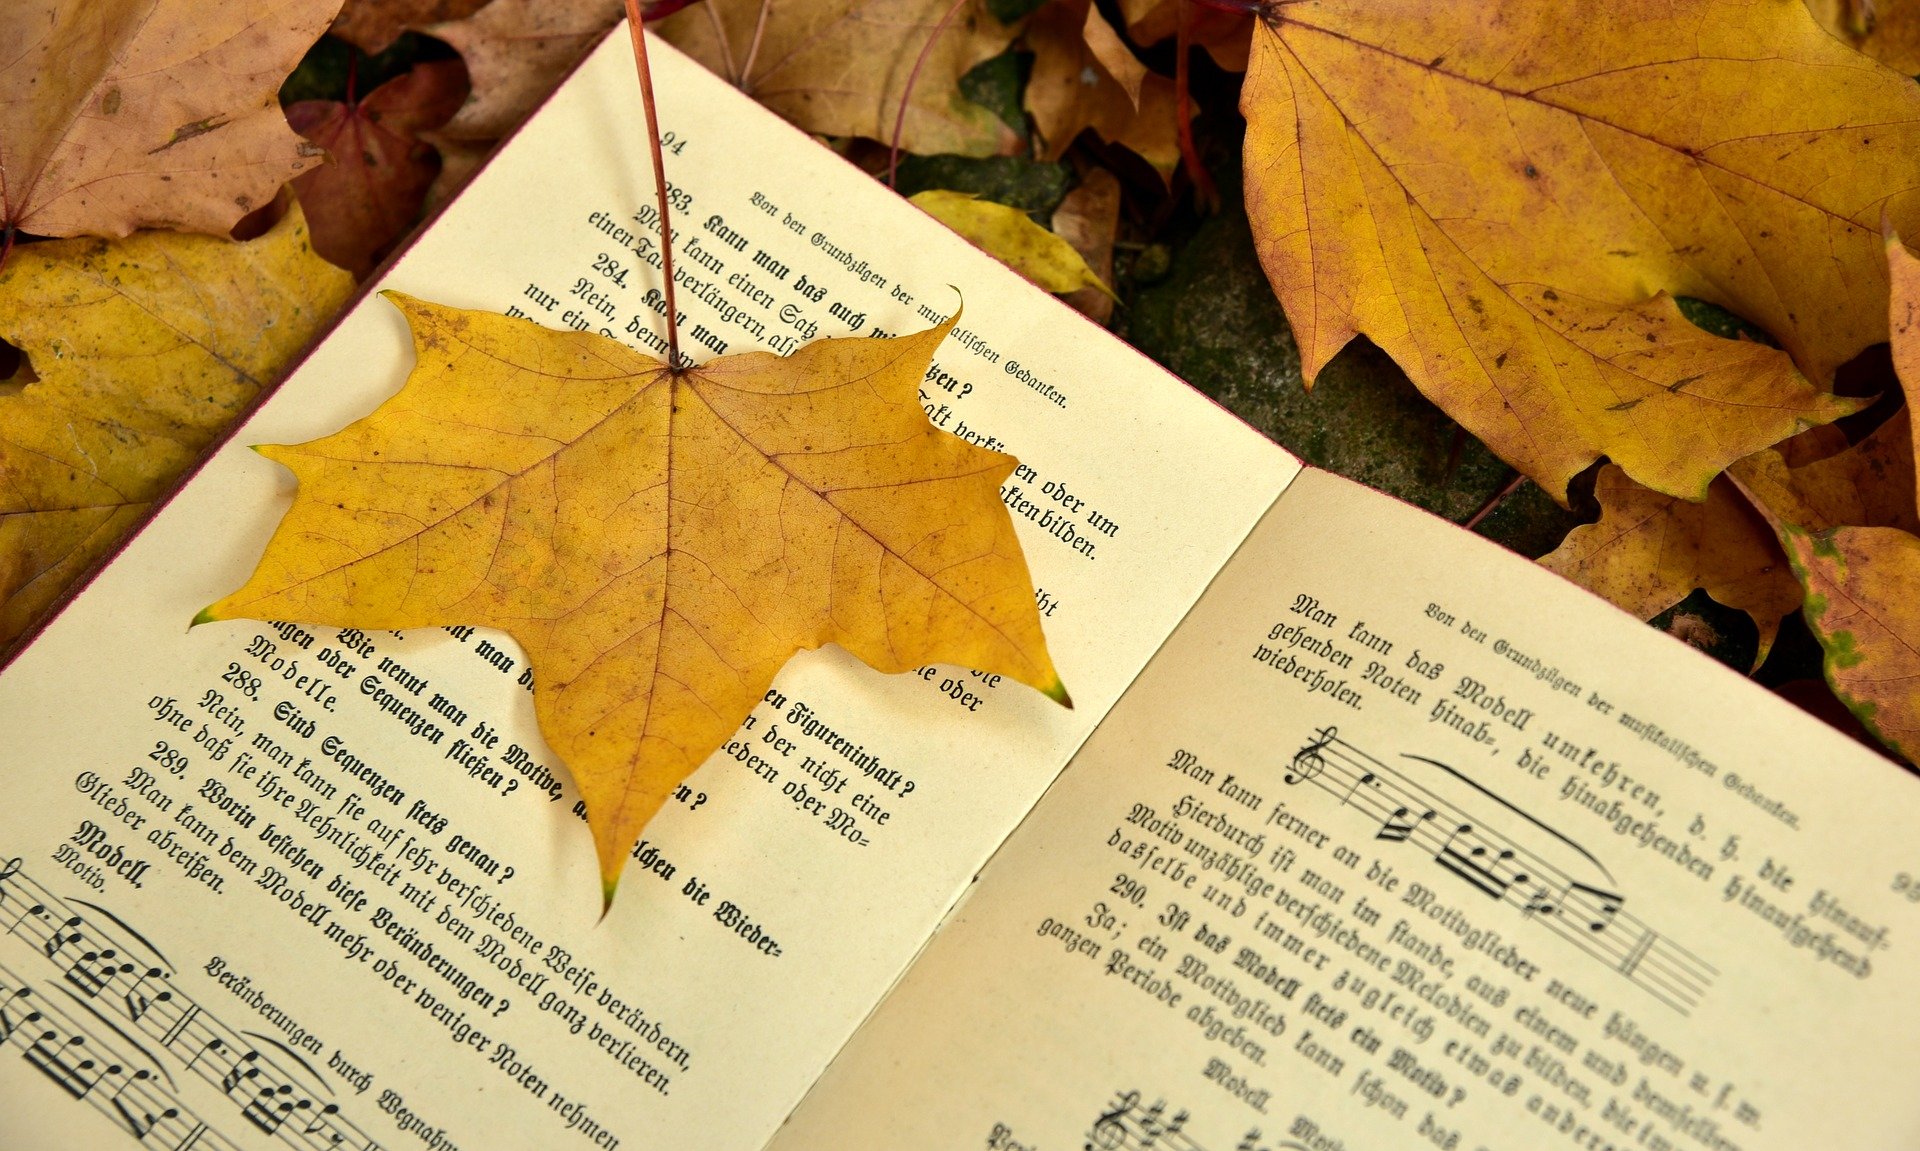 94
Von den Grundzügen der musikalischen Gedanken.
283. Kann man das auch mi tzen?
Man kann einen Satz Takt verkü en oder um
einen Takt verlängern, als akten bilden.
284. Kann man
Nein, denn
nur ein ibt
die
ne oder
nnt man di en Figureninhalt?
n der nicht eine
iedern oder Mo=
Wie nennt man die Motive, au elchen die Wieder=
ngen oder Sequenzen fließen?
Modelle.
288. Sind Sequenzen stets genau?
Nein, man kann sie auf sehr verschiedene Weise verändern,
ohne daß sie ihre Aehnlichkeit mit dem Modell ganz verlieren.
289. Worin bestehen diese Veränderungen?
Man kann dem Modell mehr oder weniger Noten nehmen
Glieder abreißen.
Modell. Veränderungen durch Wegnahm
Motiv.
95
Von den Grundzügen der musikalischen Gedanken.
Man kann das Modell umkehren, d. h. die hinauf=
gehenden Noten hinab=, die hinabgehenden hinaufgehend
wiederholen.
Man kann ferner an die Motivglieder neue hängen u. s. w.
Hierdurch ist man im stande, aus einem und demselben
Motiv unzählige verschiedene Melodien zu bilden, die im
dasselbe und immer zugleich etwas andere
290. Ist das Modell stets ein Motiv?
Ja; ein Motivglied kann schon das
ganzen Periode abgeben.
Modell. Moti